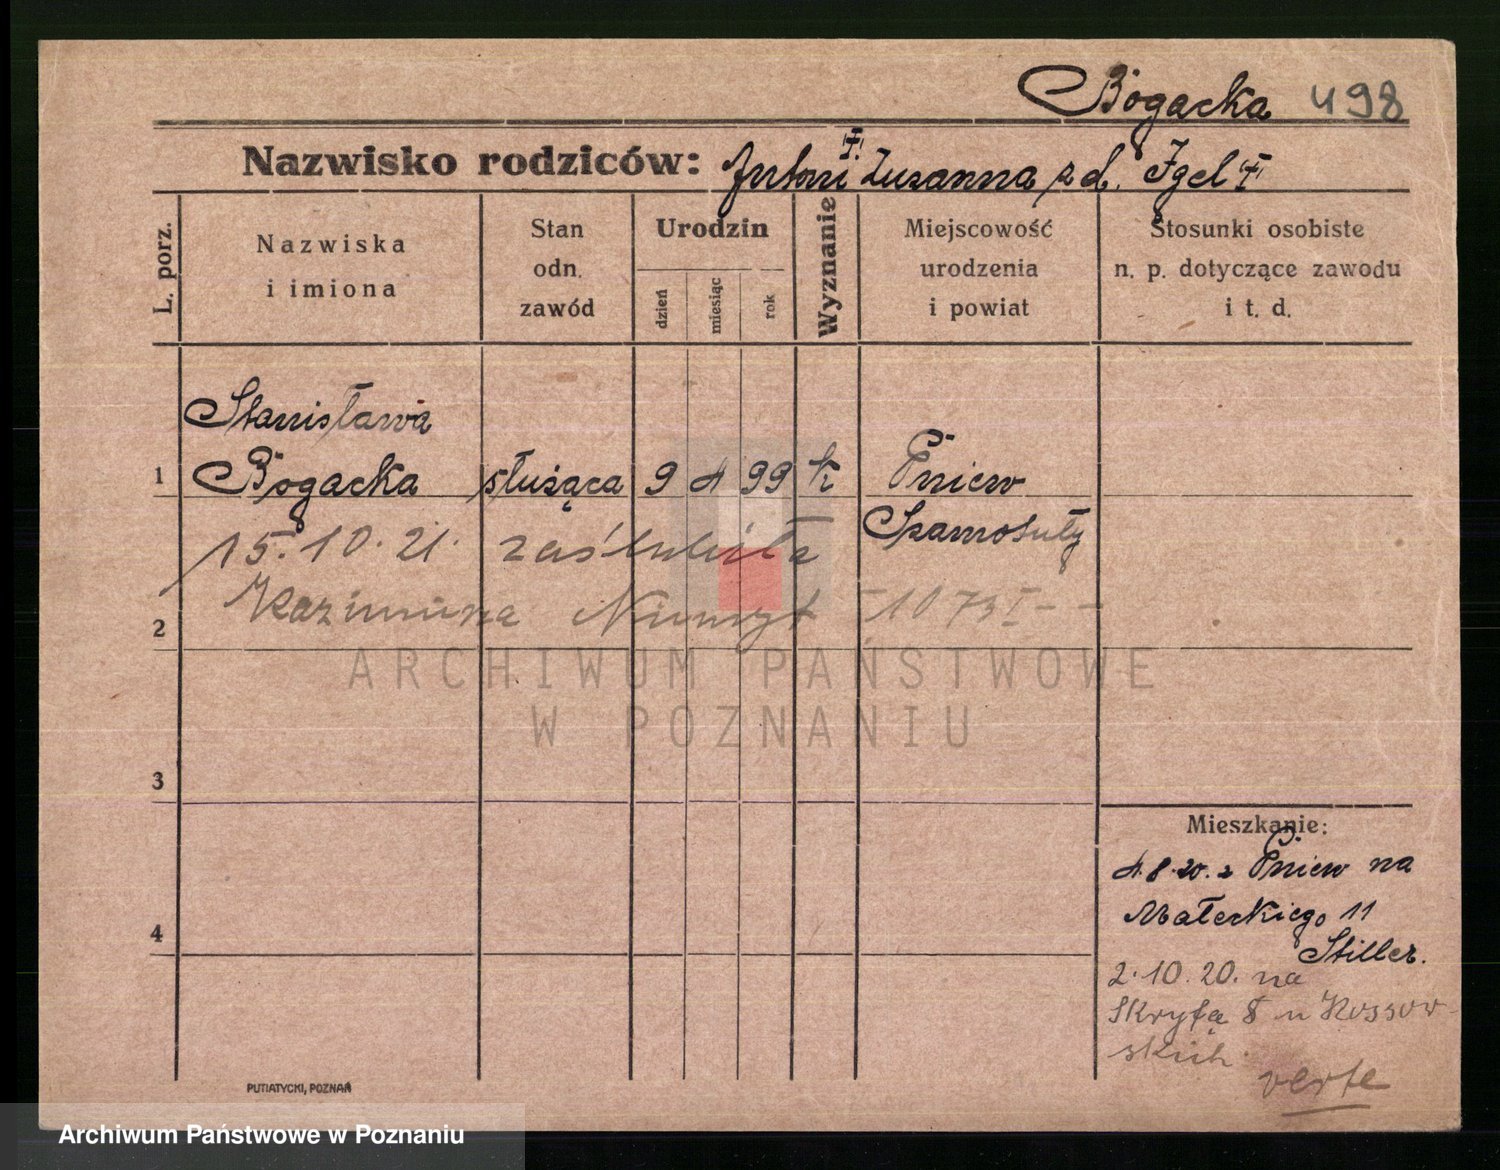 Bogacka 498
Nazwisko rodziców: Antoni Zuzanna z d. Igel
L. porz.
Nazwiska
i imiona
Stan
odn.
zawód
Urodzin
dzień
miesiąc
rok
Wyznanie
Miejscowość
urodzenia
i powiat
Stosunki osobiste
n. p. dotyczące zawodu
i t. d.
Stanisława
1 Bogacka służąca 9 4 99 k Pniew
Szamotuły
15.10.21. zaślubiła
2 Kazimierza
ARCHIWUM PAŃSTWOWE
W POZNANIU
3
Mieszkanie:
4.8.20. z Pniew na
Małeckiego 11
4
Stiller.
2.10.20. na
Skrytą 8 u Kossow-
skich.
verte
PUTIATYCKI, POZNAŃ
Archiwum Państwowe w Poznaniu